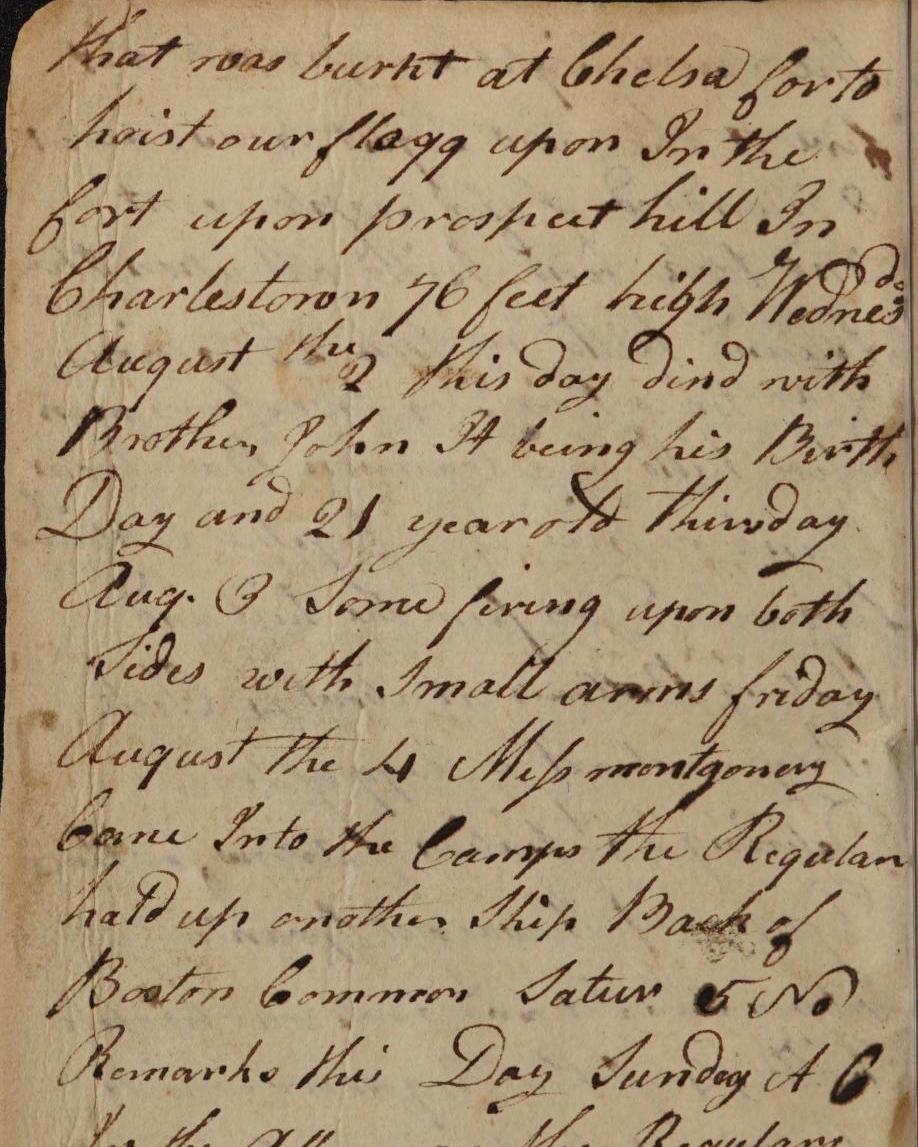 that was burnt at Chelsa for to
hoist our flagg upon In the
fort upon prospect hill In
Charlestown 76 feet high Wednesd.
August the 2 this day dind with
Brother John It being his Birth
Day and 21 year old thirsday
Aug. 3 Some firing upon both
Sides with Small arms friday
August the 4 Miss montgomery
Came Into the Camps the Regulars
hald up another Ship Back of
Boston Common Satur 5 No
Remarks this Day Sunday A 6
In the the Regulars